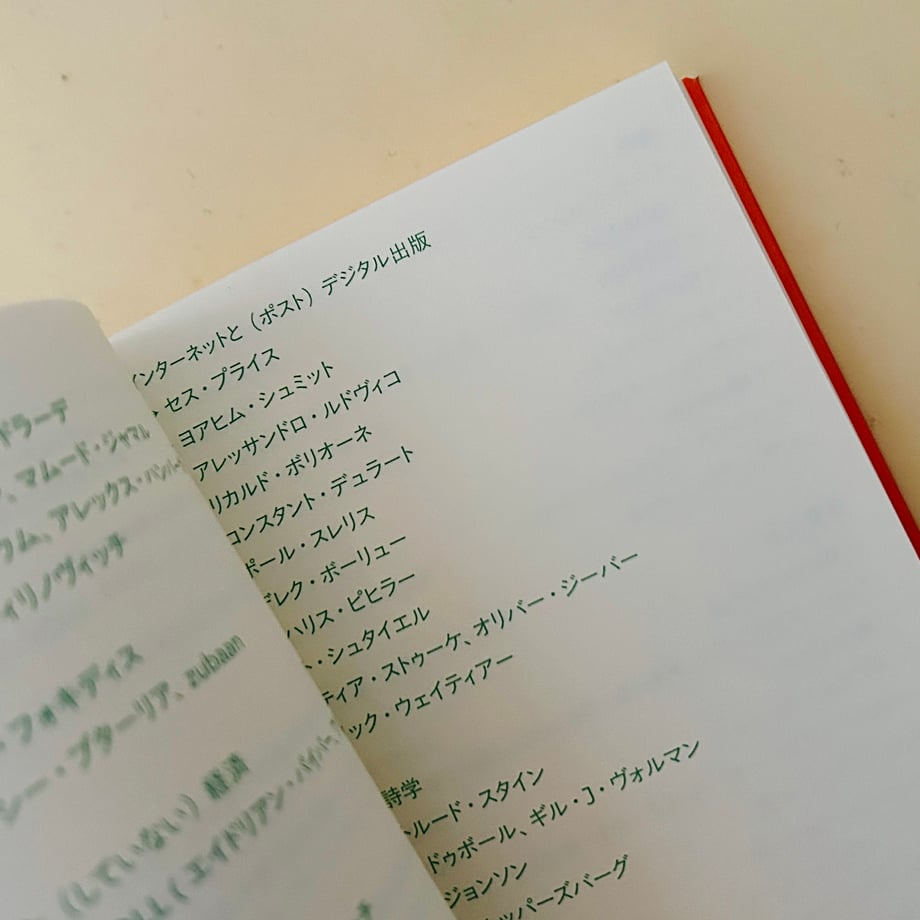 ドラーテ
、マムード・ジャマル
クム、アレックス・バンバー
ィリノヴィッチ
・フォキディス
シー・ブターリア、zubaan
（していない）経済
（エイドリアン・パイパー、
ンターネットと（ポスト）デジタル出版
セス・プライス
ヨアヒム・シュミット
アレッサンドロ・ルドヴィコ
リカルド・ボリオーネ
コンスタント・デュラート
ポール・スレリス
デレク・ボーリュー
ハリス・ピヒラー
・シュタイエル
ティア・ストゥーケ、オリバー・ジーバー
ック・ウェイティアー
詩学
ルード・スタイン
ドゥボール、ギル・J・ヴォルマン
ジョンソン
ッパーズバーグ